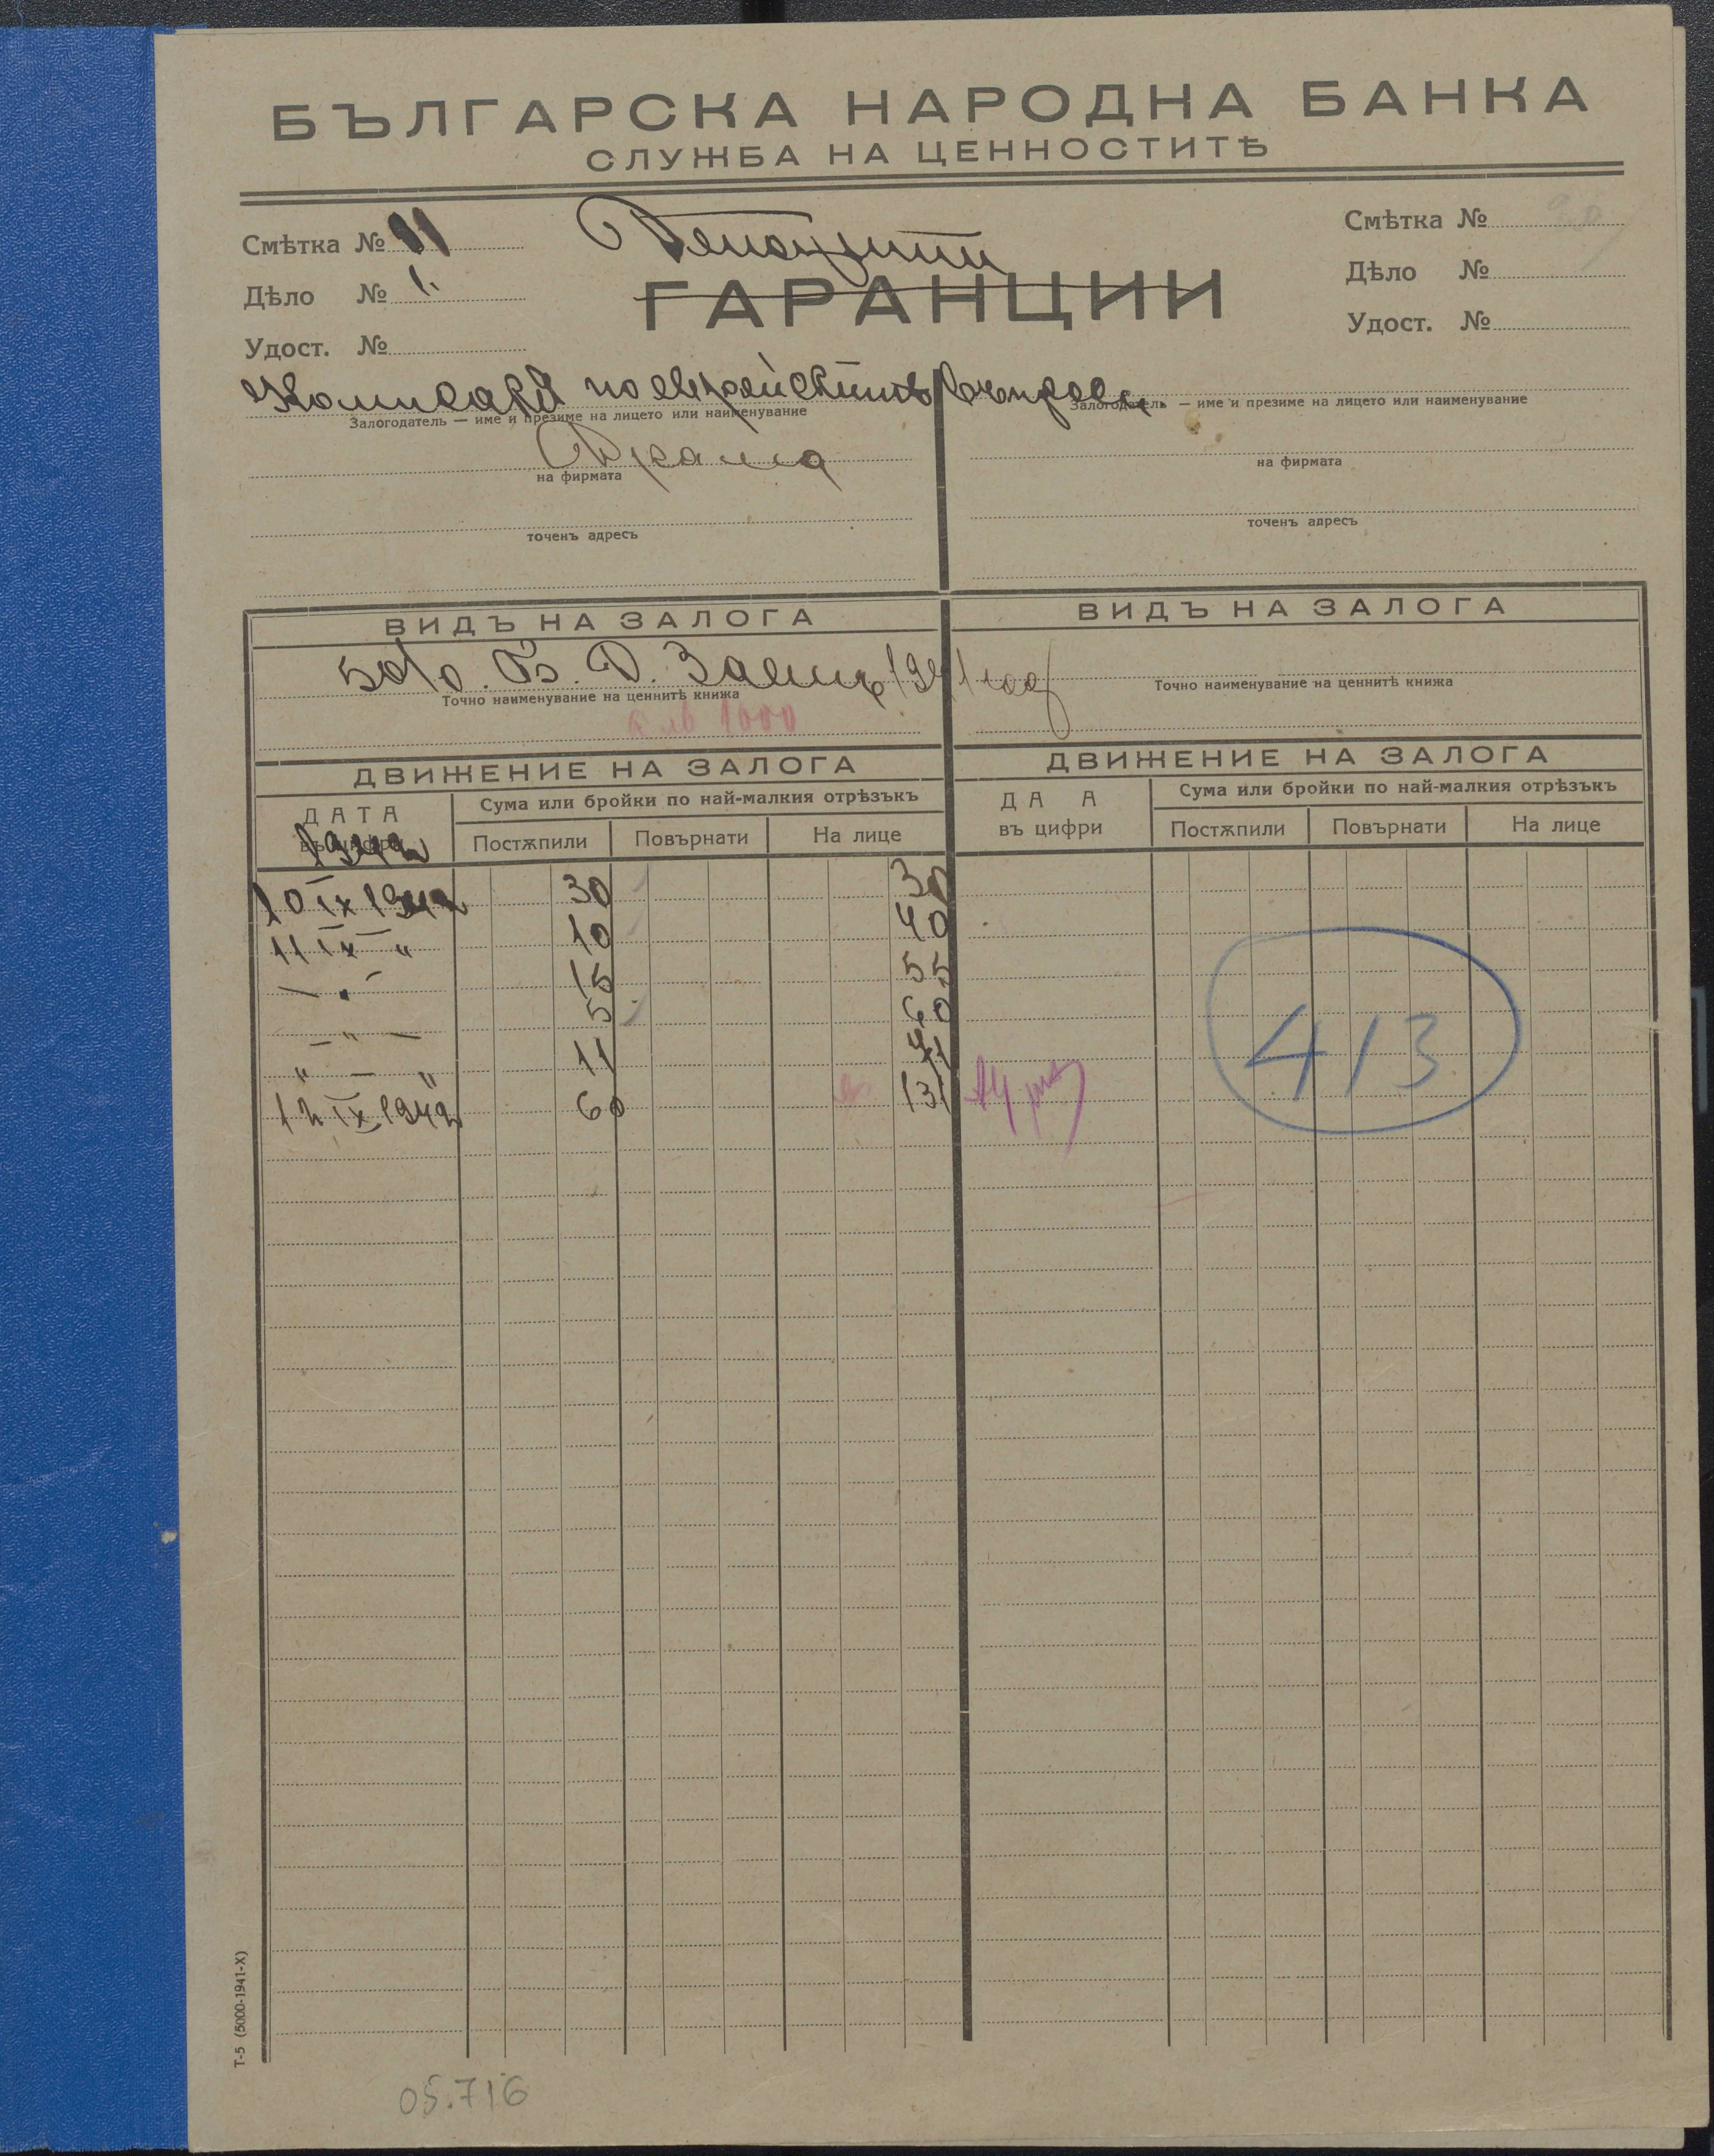 БЪЛГАРСКА НАРОДНА БАНКА
СЛУЖБА НА ЦЕННОСТИТѢ
Смѣтка № 11
Дѣло № 1.
Удост. №
Депозити
ГАРАНЦИИ
Смѣтка №
Дѣло №
Удост. №
Комисаръ по еврейскитѣ въпроси
Залогодатель — име и презиме на лицето или наименување
Залогодатель — име и презиме на лицето или наименување
Драма
на фирмата
на фирмата
точенъ адресъ
точенъ адресъ
ВИДЪ НА ЗАЛОГА
ВИДЪ НА ЗАЛОГА
5% Б. Д. Заемъ 1941 год
Точно наименувание на ценнитѣ книжа
Точно наименувание на ценнитѣ книжа
лв 1000
ДВИЖЕНИЕ НА ЗАЛОГА
ДВИЖЕНИЕ НА ЗАЛОГА
ДАТА
Сума или бройки по най-малкия отрѣзъкъ
ДА А
Сума или бройки по най-малкия отрѣзъкъ
1942
Постѫпили Повърнати На лице
въ цифри
Постѫпили Повърнати На лице
10 IX 1942 30 30
11 IX " 10 40
— " — 15 55
— " — 5 60
" — " 11 71
12 IX 1942 60 131
413
Т-5 (5000-1941-X)
05.716